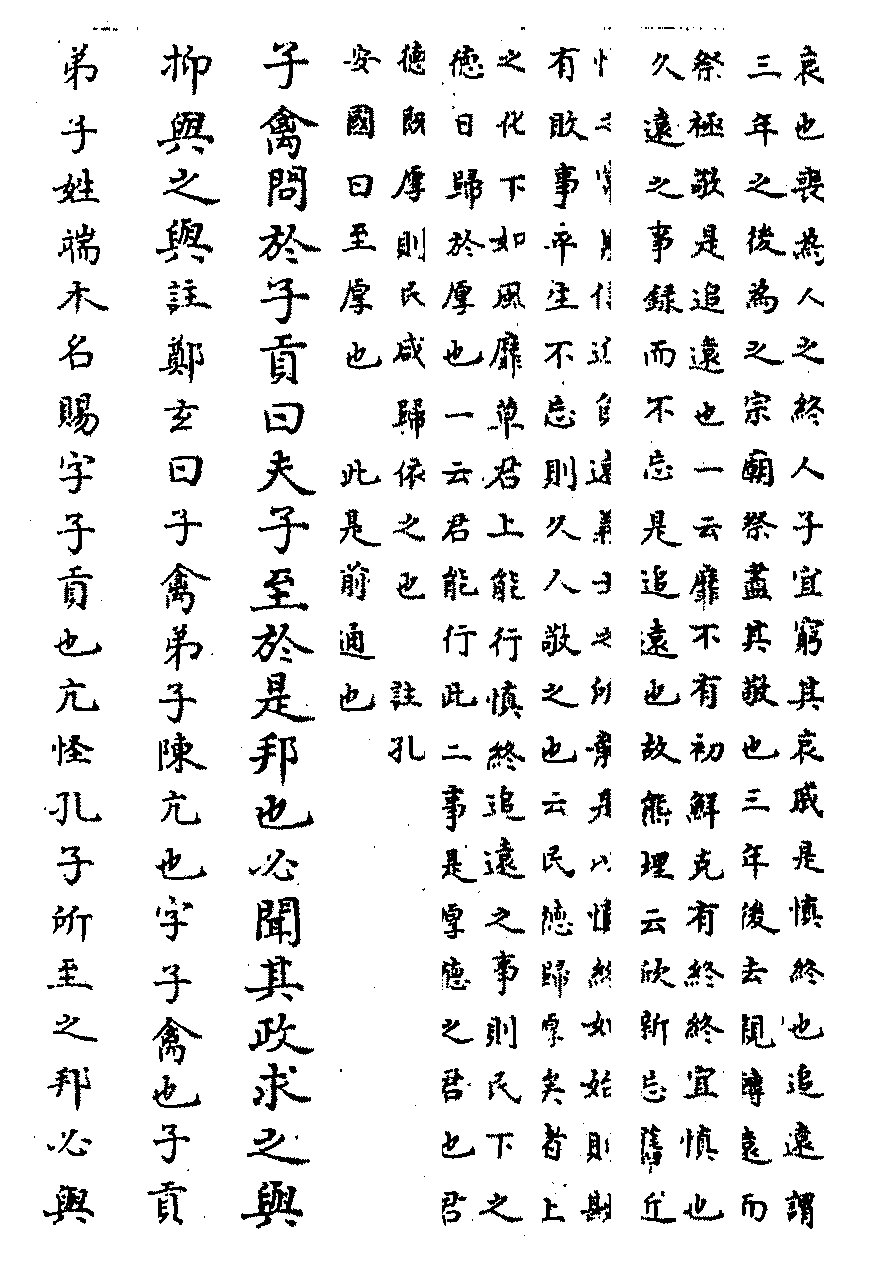 哀也喪為人之終人子宜窮其哀戚是慎終也追遠謂
三年之後為之宗廟祭盡其敬也三年後去親轉遠而
祭極敬是追遠也一云靡不有初鮮克有終終宜慎也
久遠之事録而不忘是追遠也故熊理云欣新忘舊近
情之常信近負遠義士之所棄是以慎終如始則尠
有敗事卒生不忘則久人敬之也云民德歸厚矣者上
之化下如風靡草君上能行慎終追遠之事則民下之
德日歸於厚也一云君能行此二事是厚德之君也君
德既厚則民咸歸依之也 註孔
安國曰至厚也 此是前通也
子禽問於子貢曰夫子至於是邦也必聞其政求之與
抑與之與註鄭玄曰子禽弟子陳亢也字子禽也子貢
弟子姓端木名賜字子貢也亢怪孔子所至之邦必與